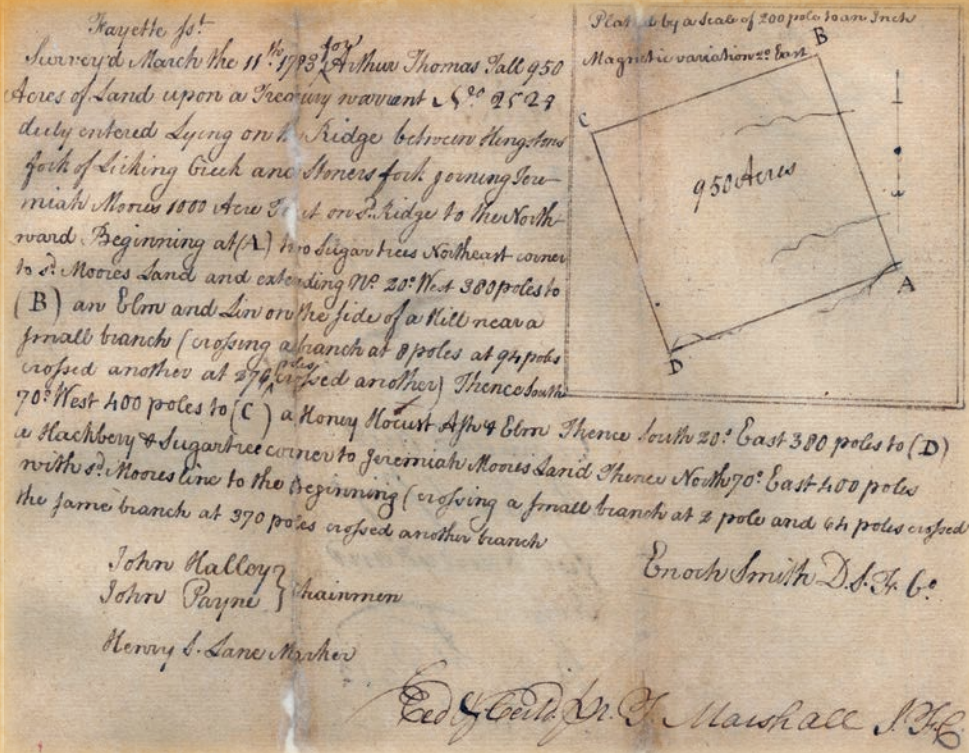 Fayette fst
Survey'd March the 11th 1783 for Arthur Thomas Fall 950
Acres of Land upon a Treasury warrant No 2523
duly entered Lying on Ridge between Hingstons
fork of Licking Creek and Stoners fork joining Jere-
miah Moores 1000 Acre on sd. Ridge to the North-
ward Beginning at (A) two Sugartrees Northeast corner
to sd. Moores Land and extending No. 20o West 380 poles to
(B) an Elm and Lin on the side of a Hill near a
small branch (crossing a branch at 8 poles at 94 poles
crossed another at 276 poles crossed another) Thence South
70o West 400 poles to (C) a Honey Locust Ash & Elm Thence South 20o East 380 poles to (D)
a Hackbery & Sugartree corner to Jeremiah Moores Land Thence North 70o East 400 poles
with sd. Moores line to the Beginning (crossing a small branch at 2 pole and 64 poles crossed
the same branch at 370 poles crossed another branch
John Halley } Chainmen
John Payne }
Henry S. Lane Marker
Enoch Smith D.S.F. Co.
T. Marshall S.F.C.
Platted by a Scale of 200 poles to an Inch
Magnetic variation 2o East
B
C
950 Acres
A
D